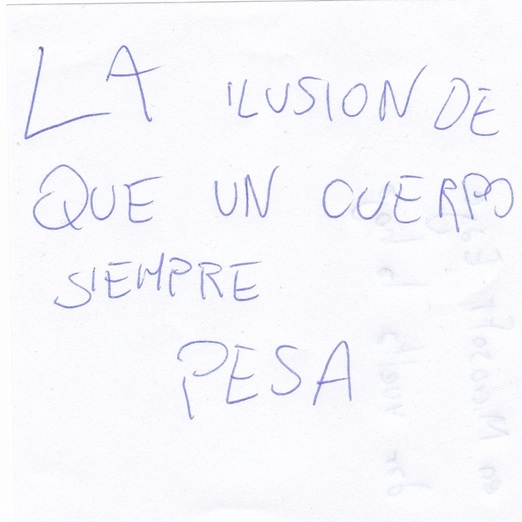 LA ILUSION DE
QUE UN CUERPO
SIEMPRE
PESA